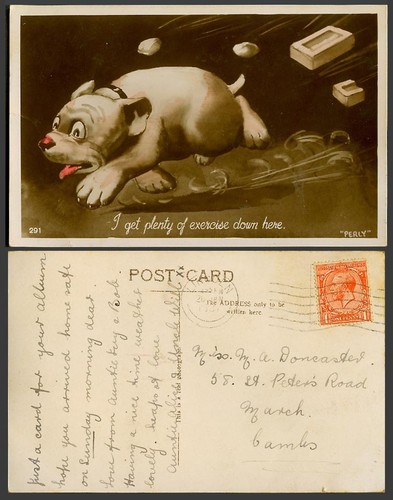 I get plenty of exercise down here.
291
"PERLY"
POST CARD
The ADDRESS only to be
written here.
Just a card for your album
hope you arrived home safe
on Sunday morning dear
love from Auntie &
Having a nice time weather
lovely. heaps of love
Auntie Uncle
Miss. M. A. Doncaster.
58. St. Peter's Road
March.
Cambs